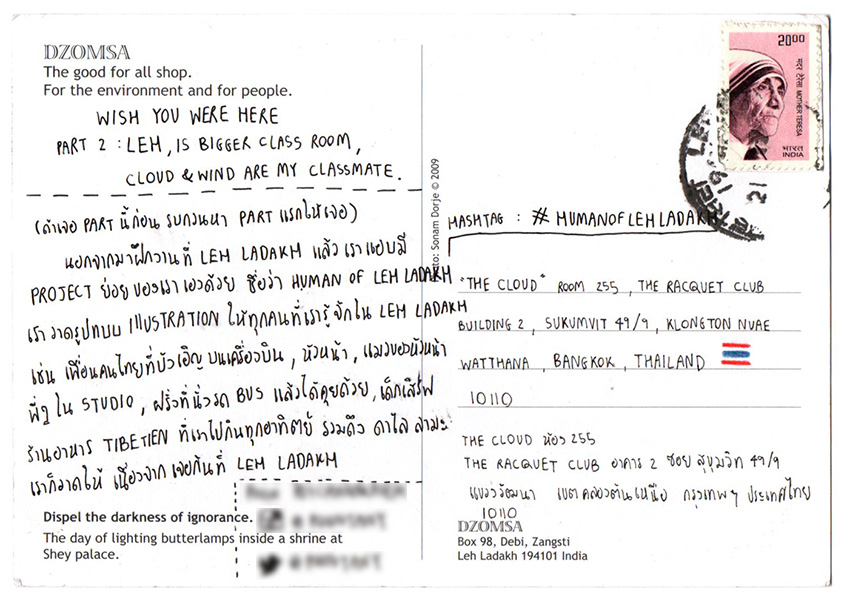 DZOMSA
The good for all shop.
For the environment and for people.
WISH YOU WERE HERE
PART 2 : LEH, IS BIGGER CLASS ROOM,
CLOUD & WIND ARE MY CLASSMATE.
(ถ้าเจอ PART นี้ก่อน รบกวนหา PART แรกให้เจอ)
นอกจากมาฝึกงานที่ LEH LADAKH แล้ว เราแอบมี
PROJECT ย่อยของเราเองด้วย ชื่อว่า HUMAN OF LEH LADAKH
เราวาดรูปแบบ ILLUSTRATION ให้ทุกคนที่เรารู้จักใน LEH LADAKH
เช่น เพื่อนคนไทยที่บังเอิญบนเครื่องบิน, หัวหน้า, แมวของหัวหน้า
พี่ๆ ใน STUDIO, ฝรั่งที่นั่งรถ BUS แล้วได้คุยด้วย, เด็กเสิร์ฟ
ร้านอาหาร TIBETIEN ที่เราไปกินทุกอาทิตย์ รวมถึง ดาไล ลามะ
เราก็วาดให้ เนื่องจาก เจอกันที่ LEH LADAKH
Dispel the darkness of ignorance.
The day of lighting butterlamps inside a shrine at
Shey palace.
to: Sonam Dorje © 2009
2000
मदर टेरेसा MOTHER TERESA
भारत
INDIA
21
HASHTAG : # HUMANOFLEHLADAKH
"THE CLOUD" ROOM 255, THE RACQUET CLUB
BUILDING 2, SUKUMVIT 49/9, KLONGTON NUAE
WATTHANA, BANGKOK, THAILAND
10110
THE CLOUD ห้อง 255
THE RACQUET CLUB อาคาร 2 ซอย สุขุมวิท 49/9
แขวงวัฒนา เขต คลองตันเหนือ กรุงเทพฯ ประเทศไทย
10110
DZOMSA
Box 98, Debi, Zangsti
Leh Ladakh 194101 India